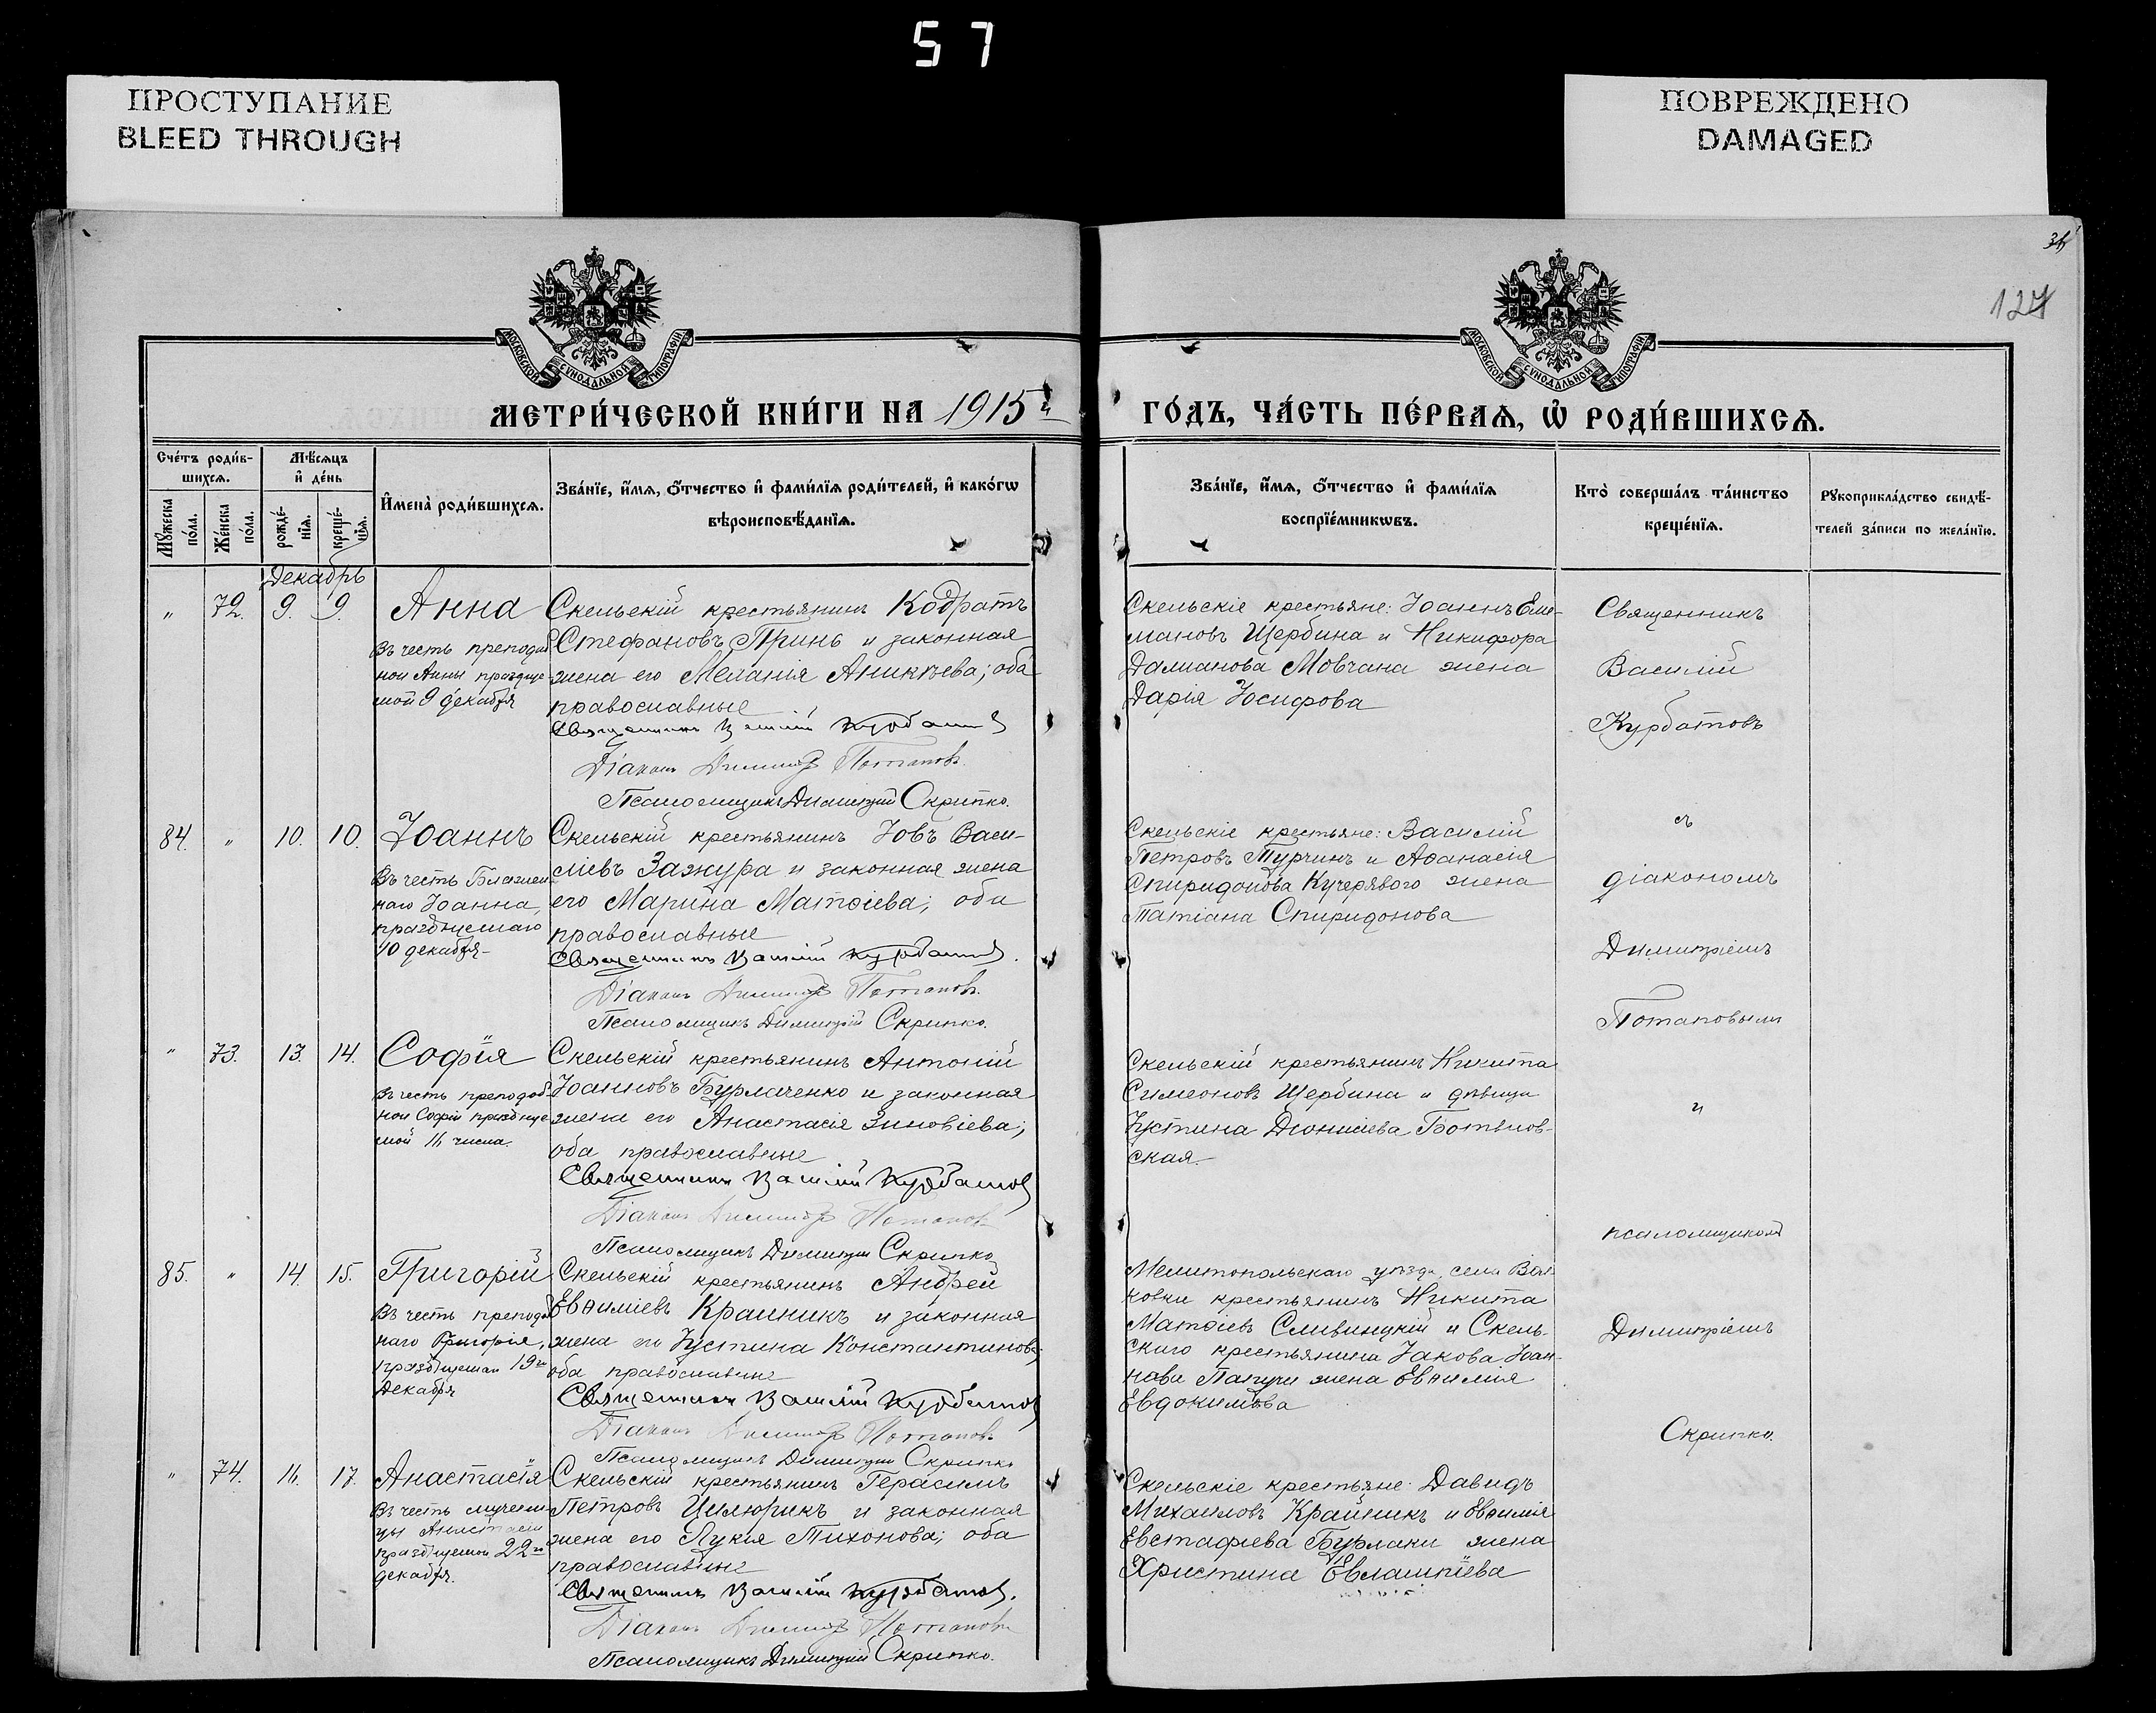 57
ПРОСТУПАНИЕ
BLEED THROUGH
ПОВРЕЖДЕНО
DAMAGED
127
МОСКОВСКОЙ СѴНОДАЛЬНОЙ ТИПОГРАФІИ
МОСКОВСКОЙ СѴНОДАЛЬНОЙ ТИПОГРАФІИ
МЕТРИ́ЧЕСКОЙ КНИ́ГИ НА 1915й
ГО́ДЪ, ЧА́СТЬ ПЕ́РВАѦ, Ѡ҆ РОДИ́ВШИХСѦ.
Сче́тъ роди́в-
шихсѧ.
Мꙋжеска по́ла.
Же́нска по́ла.
Мѣ́сѧцъ
и҆ де́нь
рожде́-нїѧ.
креще́-нїѧ.
И҆мена̀ роди́вшихсѧ.
Зва́нїе, и҆́мѧ, ѻ҆́тчество и҆ фами́лїѧ роди́телей, и҆ како́гѡ
вѣроисповѣ́данїѧ.
Зва́нїе, и҆́мѧ, ѻ҆́тчество и҆ фами́лїѧ
воспрїе́мникѡвъ.
Кто̀ соверша́лъ та́инство
креще́нїѧ.
Рꙋкоприкла́дство свидѣ́-
телей за́писи по жела́нїю.
Декабрь
" 72. 9. 9. Анна
Въ честь преподоб
ной Анны празднуе-
мой 9 декабря
Скельскій крестьянинъ Кодратъ
Стефановъ Принь и законная
жена его Меланія Аникіева; оба
православные
Священникъ Василій Курбатовъ
Діаконъ Димитрій Потаповъ.
Псаломщикъ Димитрій Скрипко.
Скельскіе крестьяне: Іоаннъ Еме-
ліановъ Щербина и Никифора
Даміанова Мовчана жена
Дарія Іосифова
Священникъ
Василій
Курбатовъ
съ
діакономъ
Димитріемъ
Потаповымъ
и
псаломщикомъ
Димитріемъ
Скрипко.
84. " 10. 10. Іоаннъ
Въ честь Блажен-
наго Іоанна,
празднуемаго
10 декабря
Скельскій крестьянинъ Іовъ Васи-
ліевъ Зажура и законная жена
его Марина Матѳіева; оба
православные
Священникъ Василій Курбатовъ.
Діаконъ Димитрій Потаповъ.
Псаломщикъ Димитрій Скрипко.
Скельскіе крестьяне: Василій
Петровъ Турчинъ и Аѳанасія
Спиридонова Кучерявого жена
Татіана Спиридонова
" 73. 13. 14. Софія
Въ честь преподоб-
ной Софіи празднуе-
мой 16 числа.
Скельскій крестьянинъ Антоній
Іоанновъ Бурлаченко и законная
жена его Анастасія Зиновіева;
оба православные
Священникъ Василій Курбатовъ
Діаконъ Димитрій Потаповъ
Псаломщикъ Димитрій Скрипко
Скельскій крестьянинъ Никита
Симеоновъ Щербина и дѣвица
Іустина Діонисіева
ская
85. " 14 15. Григорій
Въ честь преподоб
наго Григорія,
19го
Декабря
Скельскій крестьянинъ Андрей
Евѳиміевъ Крайникъ и законная
жена его Іустина Константинова;
оба православные
Священникъ Василій Курбатовъ
Діаконъ Димитрій Потаповъ
Псаломщикъ Димитрій Скрипко
Мелитопольскаго уѣзда, села
крестьянинъ Никита
Матѳіевъ Сливинцкій и Скель-
скаго крестьянина Іакова Іоан-
нова жена Евѳимія
Евдокимова
" 74. 16. 17. Анастасія
Въ честь мучени-
цы Анастасіи
празднуемой 22го
декабря.
Скельскій крестьянинъ Герасимъ
Петровъ Цилюрикъ и законная
жена его Лукія Тихонова; оба
православные
Священникъ Василій Курбатовъ.
Діаконъ Димитрій Потаповъ
Псаломщикъ Димитрій Скрипко.
Скельскіе крестьяне: Давидъ
Михаиловъ Крайникъ и Евѳимія
Евстафіева Бурлаки жена
Христина Евлампіева